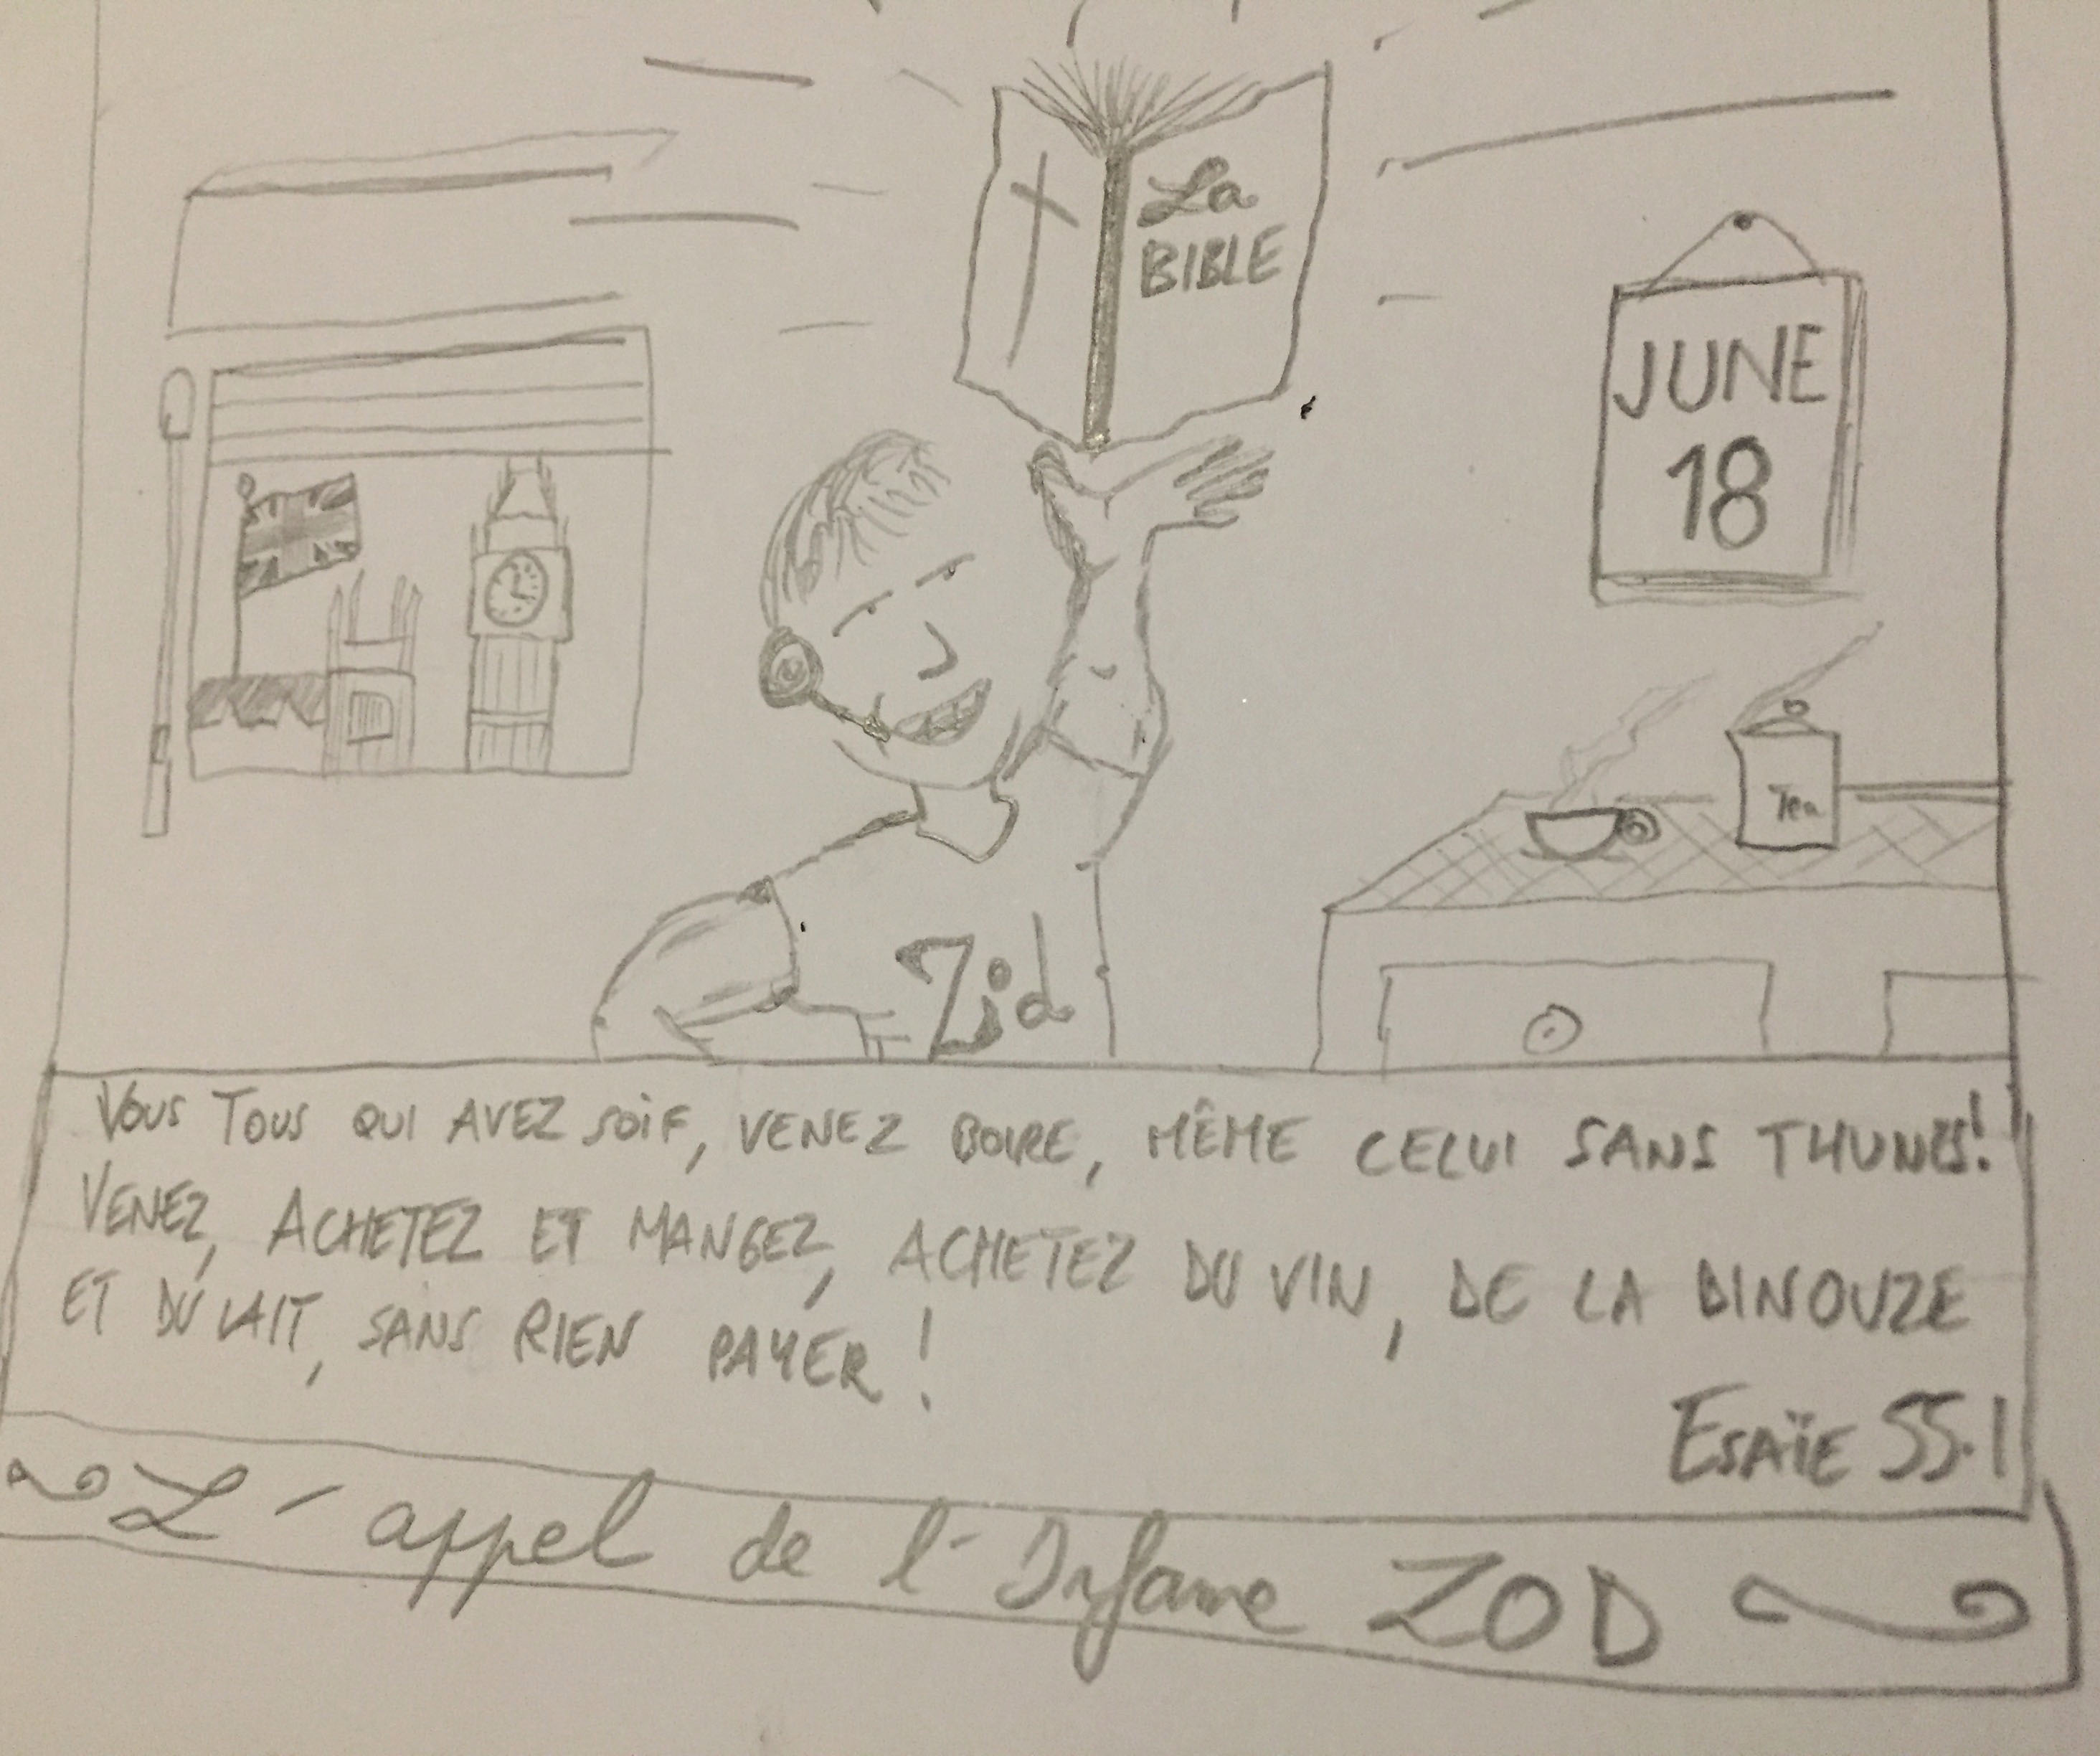 La
BIBLE
JUNE
18
Tea
Zid
Vous Tous QUI AVEZ SOIF, VENEZ BOIRE, MÊME CELUI SANS THUNES!
VENEZ, ACHETEZ ET MANGEZ, ACHETEZ DU VIN, DE LA BINOUZE
ET DU LAIT, SANS RIEN PAYER !
ESAÏE 55.1
L'appel de l'Infame ZOD